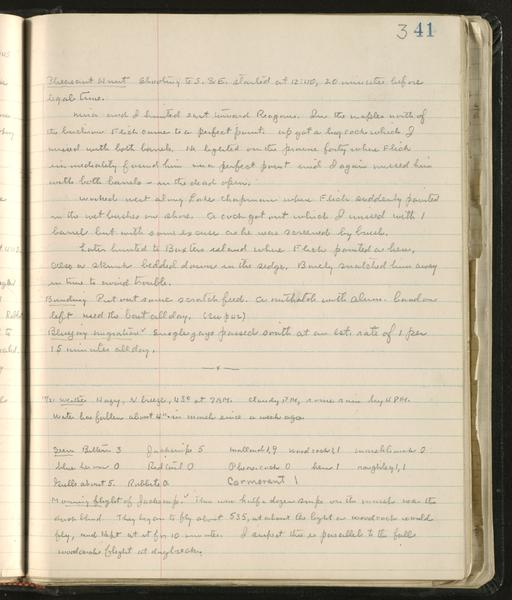 3 41
Pheasant Hunt Shooting to S. & E. started at 12:40, 20 minutes before
legal time.
Nina and I hunted east toward Reagans. In the maples north of
the Flick came to a perfect point. up got a big cock which I
missed with both barrels. He lighted on the prairie forty where Flick
immediately found him in a perfect point and I again missed him
with both barrels - in the dead open.
Worked west along Lake Chapman where Flick suddenly pointed
in the wet bushes on shore. A cock got out which I missed with 1
barrel but with some excuse as he was screened by brush.
Later hunted to Baxters island where Flick pointed a hen,
also a skunk bedded down in the sedge. Barely snatched him away
in time to avoid trouble.
Banding Put out some scratch feed. A nuthatch with alum. band on
left used the bait all day. (See p 42)
Bluejay migration Single jays passed south at an est. rate of 1 per
15 minutes all day.
Weather Hazy, N breeze, 43° at 7AM. Cloudy PM, some rain by 4 PM.
Water has fallen about 4" in marsh since a week ago.
Seen Bittern 3 Jacksnipe 5 mallard 1,9 woodcock 1 marsh hawk 2
blue heron 0 Redtail 0 Pheas. cock 0 hen 1 roughleg 1,1
Gulls about 5. Rabbits 0 Cormorant 1
Morning flight of Jacksnipe There were half a dozen snipe on the marsh near the
duck blind. They began to fly about 5:35, at about the light a woodcock would
fly, and kept at it for 10 minutes. I suspect this is parallel to the fall
woodcock flight at daybreak.